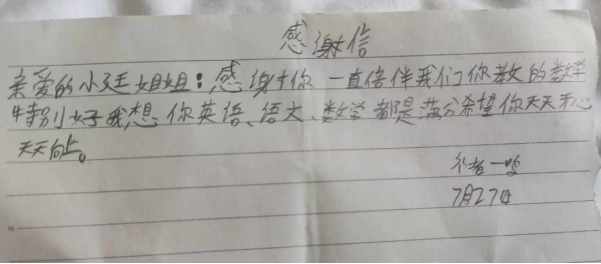 感谢信
亲爱的小廷姐姐：感谢你一直倍伴我们你教的数学
特别好我想你英语、语文、数学都是满分希望你天天开心
天天向上。
一鸣
7月27日